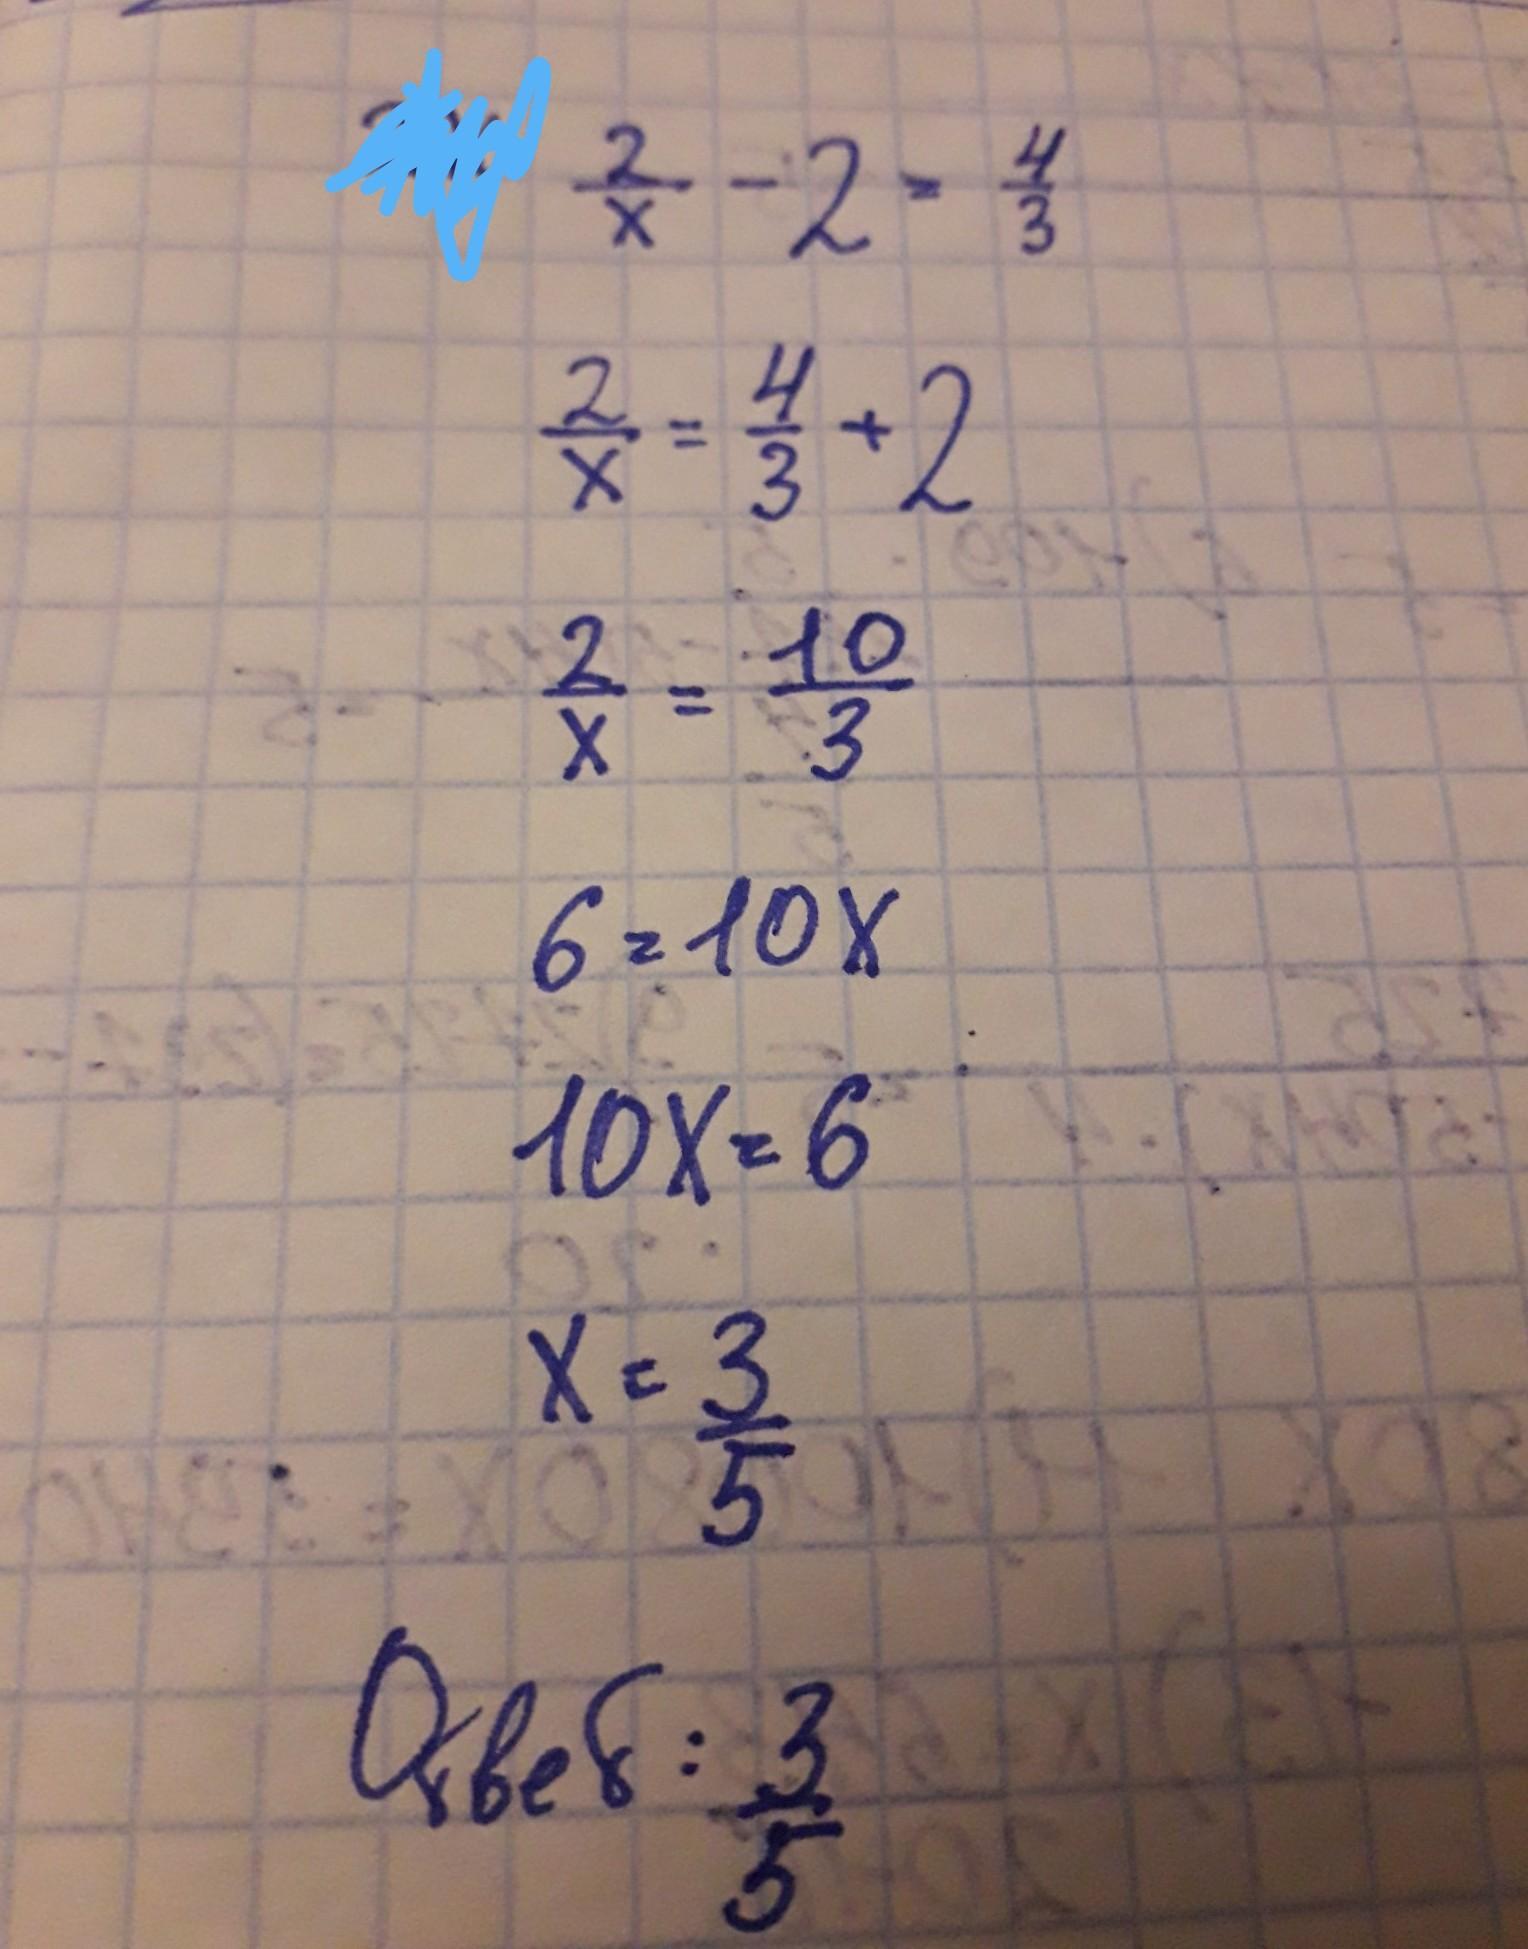 2/x - 2 = 4/3
2/x = 4/3 + 2
2/x = 10/3
6 = 10x
10x = 6
x = 3/5
Ответ: 3/5